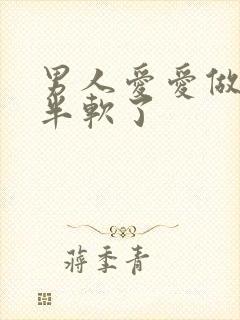 男人愛愛做
半軟了
蔣季青